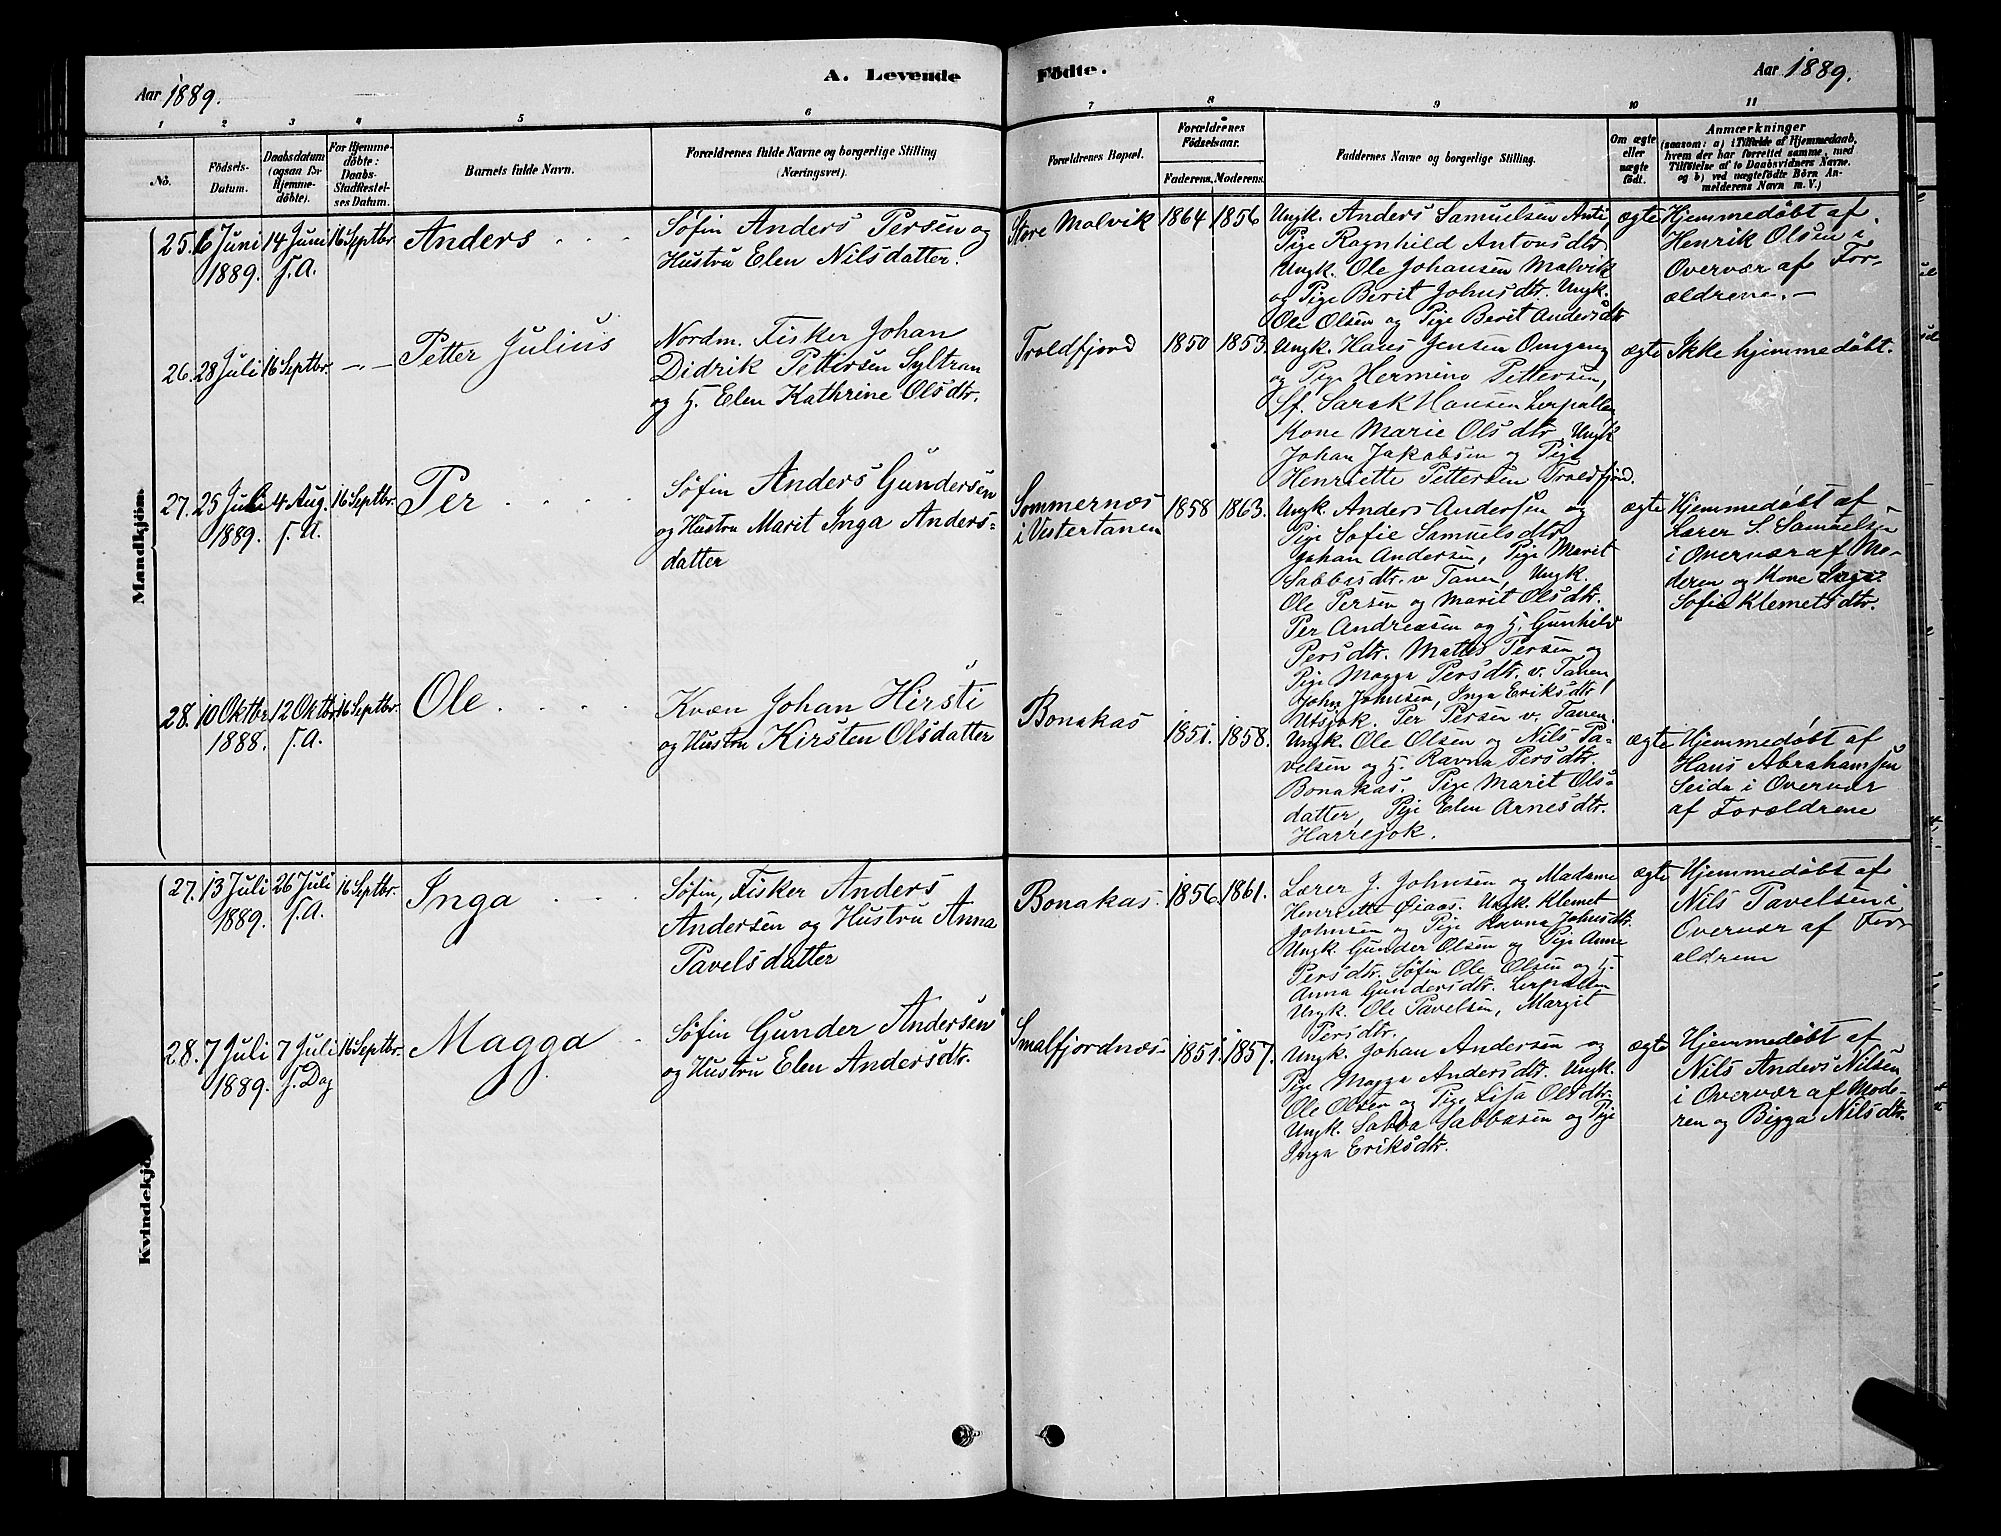 Aar 1889.
A. Levende
Fødte.
Aar 1889.
1 2 3 4 5 6 7 8 9 10 11
No.
Fødsels-
Datum.
Daabsdatum
(ogsaa for
Hjemme-
døbte).
For Hjemme-
døbte:
Daabs-
Stadfæstel-
ses Datum.
Barnets fulde Navn.
Forældrenes fulde Navne og borgerlige Stilling
(Næringsvei).
Forældrenes Bopæl.
Forældrenes
Fødselsaar.
Faderens. Moderens.
Faddernes Navne og borgerlige Stilling.
Om ægte
eller
uægte
født.
Anmærkninger
(saasom: a) i Tilfælde af Hjemmedaab,
hvem der har forrettet samme, med
Tilføielse af to Daabsvidners Navne.
og b) ved uægtefødte Børn An-
melderens Navn m. V.)
Mandkjøn
25. 6 Juni
1889.
14 Juni
s. A.
16 Septbr.
Anders
Søfin Anders Persen og
Hustru Elen Nilsdatter.
Store Malvik
1864
1856
Ungk. Anders Samuelsen Anti
Pige Ragnhild Antonsdtr
Ungk. Ole Johansen Malvik
og Pige Berit Johnsdtr. Ungk.
Ole Olsen og Pige Berit Andersdtr
ægte
Hjemmedøbt af
Henrik Olsen i
Overvær af For-
ældrene. –
26. 28 Juli
16 Septbr.
—
Petter Julius
Nordm. Fisker Johan
Didrik Pettersen Syltran
og H. Elen Kathrine Olsdtr.
Troldfjord
1850
1853.
Ungk. Hans Jensen Omgang
og Pige Hermine Pettersen,
Sf. Sarak Hansen Lerpollen
Kone Marie Olsdtr, Ungk
Johan Jakobsen og Pige
Henriette Pettersen Troldfjord.
ægte
Ikke hjemmedøbt.
27. 25 Juli
1889.
4 Aug.
s. A.
16 Septbr.
Per
Søfin Anders Gundersen
og Hustru Marit Inga Anders-
datter
Sommernæs
i Vestertanen
1858
1863.
Ungk. Anders Andersen og
Pige Sofie Samuelsdtr
Johan Andersen, Pige Marit
Sabbasdtr. v Tanen, Ungk.
Ole Persen og Marit Olsdtr.
Per Andreasen og H. Gunhild
Persdtr. Mathis Persen og
Pige Magga Persdtr. v. Tanen
John Johnsen, Inga Eriksdtr,
Utsjok. Per Persen v. Tanen.
ægte
Hjemmedøbt af
Lærer S. Samuelsen
i Overvær af Mo-
deren og Kone Inga
Sofie Klemetsdtr.
28. 10 Oktbr
1888.
12 Oktbr
s. A.
16 Septbr.
Ole
Kvæn Johan Hirsti
og Hustru Kirsten Olsdatter
Bonakas
1851.
1858.
Ungk. Ole Olsen og Nils Pa-
velsen og H. Ravna Persdtr.
Bonakas. Pige Marit Ols-
datter, Pige Elen Arnesdtr.
Harrejok.
ægte
Hjemmedøbt af
Hans Abrahamsen
Seida i Overvær
af Forældrene
Kvindekjøn
27. 13 Juli
1889.
26 Juli
s. A.
16 Septbr.
Inga
Søfin, Fisker Anders
Andersen og Hustru Anna
Pavelsdatter
Bonakas
1856
1861.
Lærer J. Johnsen og Madame
Henriette Øiaas. Ungk. Klemet
Johnsen og Pige Ravna Johnsdtr.
Ungk Gunder Olsen og Pige Anne
Persdtr. Søfin Ole Olsen og H.
Anna Gundersdtr. Lerpollen
Ungk. Ole Pavelsen, Margit
Persdtr.
ægte
Hjemmedøbt af
Nils Pavelsen i
Overvær af For
ældrene
28. 7 Juli
1889.
7 Juli
s. Dag
16 Septbr.
Magga
Søfin Gunder Andersen
og Hustru Elen Andersdtr.
Smalfjordnæs
1851.
1857.
Ungk. Johan Andersen og
Pige Magga Andersdtr. Ungk.
Ole Olsen og Pige Lisa Olsdtr.
Ungk. Sabba Sabbasen og Pige
Inga Eriksdtr.
ægte
Hjemmedøbt af
Nils Anders Nilsen
i Overvær af Mode-
ren og Bigga Nilsdtr.